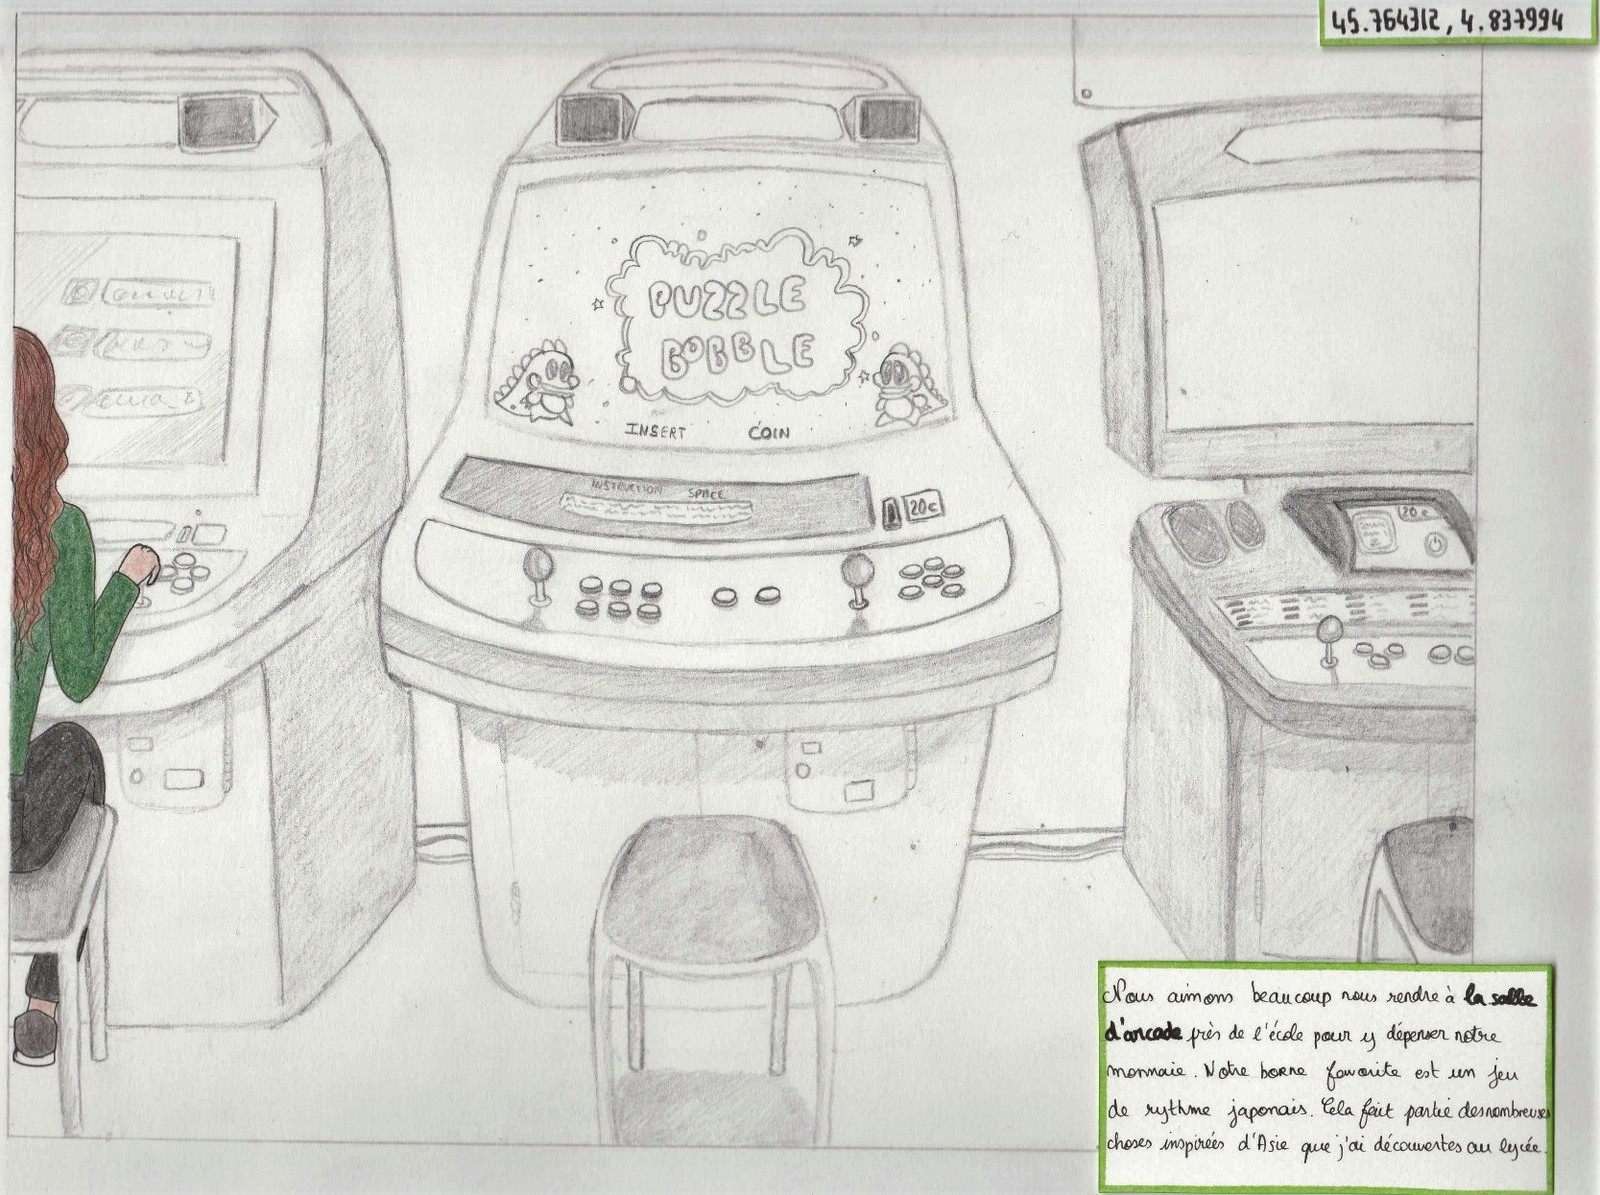 45.764312, 4.837994
PUZZLE
BOBBLE
INSERT COIN
INSTRUCTION SPACE
20c
20c
Nous aimons beaucoup nous rendre à la salle
d'arcade près de l'école pour y dépenser notre
monnaie. Notre borne favorite est un jeu
de rythme japonais. Cela fait partie des nombreuses
choses inspirées d'Asie que j'ai découvertes au lycée.